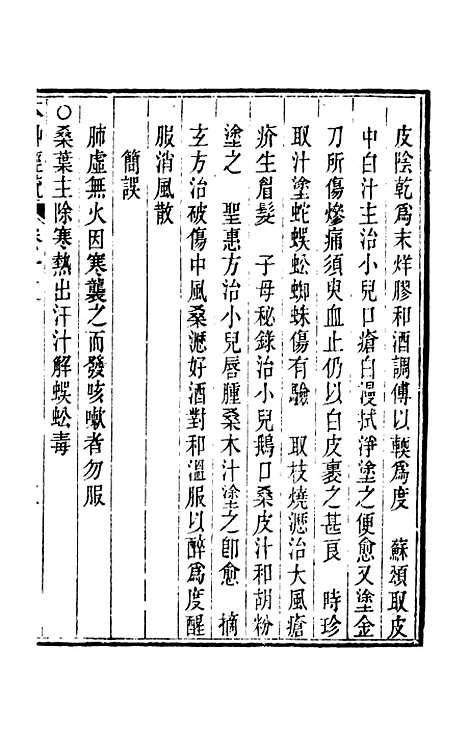 皮陰乾爲末烊膠和酒調傅以輭爲度　蘇頌取皮
中白汁主治小兒口瘡白漫拭淨塗之便愈又塗金
刀所傷燥痛須臾血止仍以白皮裹之甚良　時珍
取汁塗蛇蜈蚣蜘蛛傷有驗　取枝燒瀝治大風瘡
疥生眉髮　子母秘錄治小兒鵝口桑皮汁和胡粉
塗之　聖惠方治小兒唇腫桑木汁塗之卽愈　摘
玄方治破傷中風桑瀝好酒對和溫服以醉爲度醒
服消風散
簡誤
肺虛無火因寒襲之而發咳嗽者勿服
○桑葉主除寒熱出汗汁解蜈蚣毒